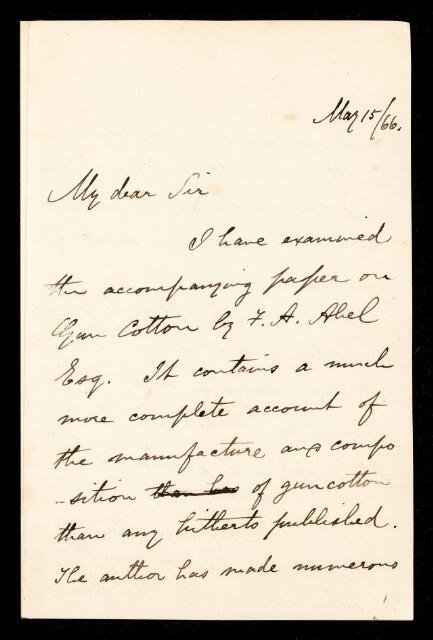 May 15/66.
My dear Sir
I have examined
the accompanying paper on
Gun Cotton by F. A. Abel
Esq. It contains a much
more complete account of
the manufacture and compo
-sition than has of guncotton
than any hitherto published.
The author has made numerous